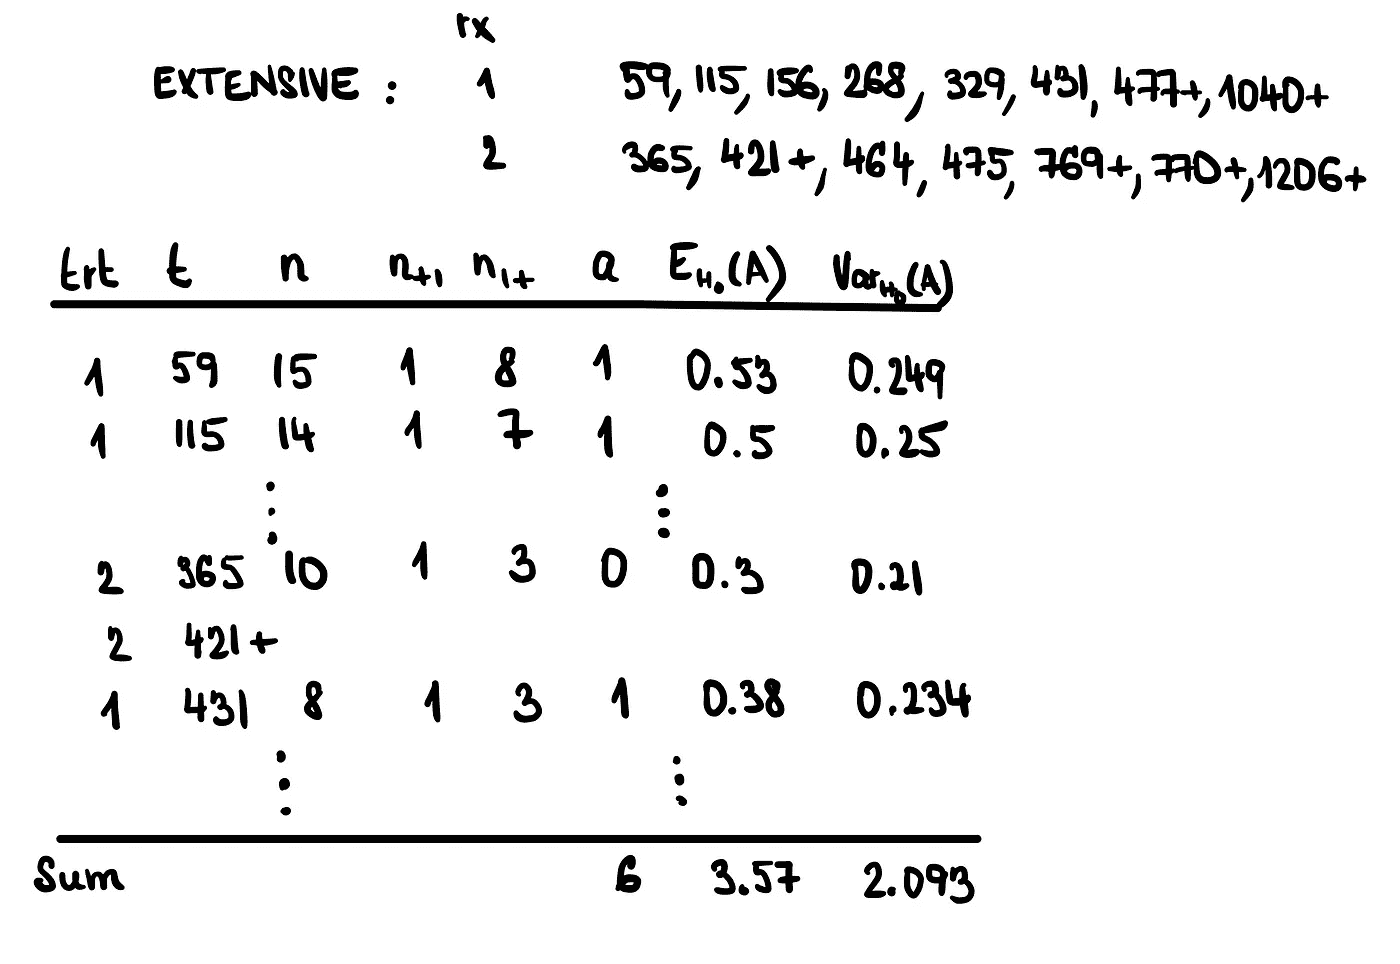 rx
EXTENSIVE : 1 59, 115, 156, 268, 329, 431, 477+, 1040+
2 365, 421+, 464, 475, 769+, 770+, 1206+
trt t n n+1 n1+ a EH0(A) VarH0(A)
1 59 15 1 8 1 0.53 0.249
1 115 14 1 7 1 0.5 0.25
⋮ ⋮
2 365 10 1 3 0 0.3 0.21
2 421+
1 431 8 1 3 1 0.38 0.234
⋮ ⋮
Sum 6 3.57 2.093